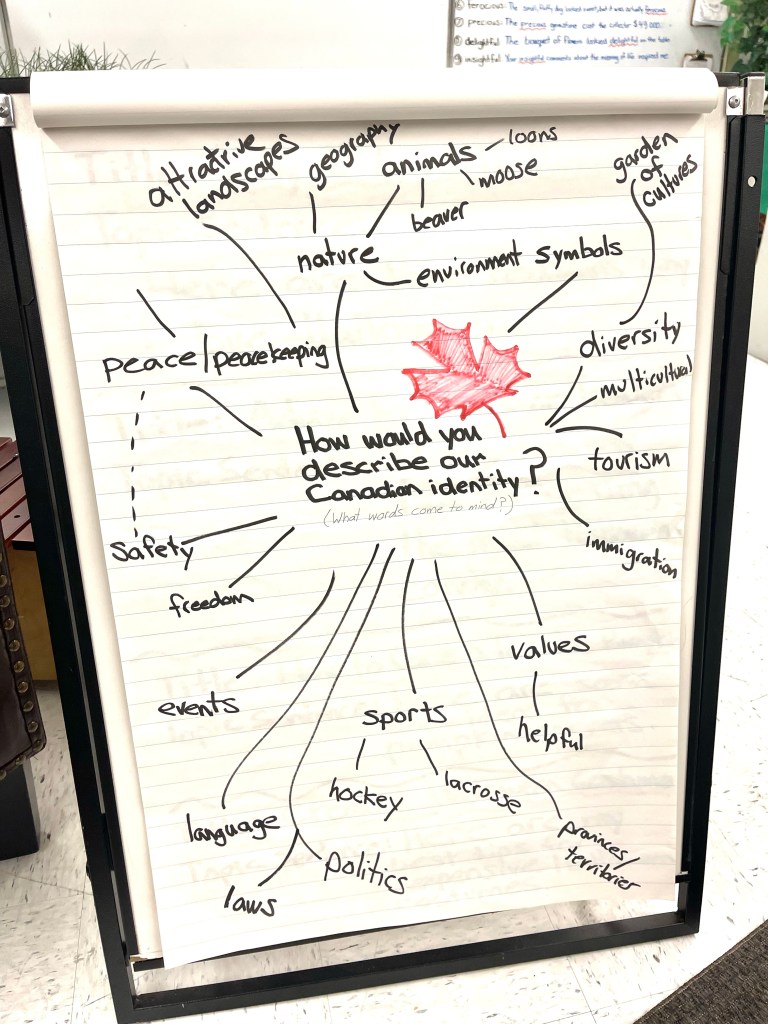 ferocious: The small, fluffy dog looked sweet, but it was actually ferocious.
precious: The precious gemstone cost the collector $49,000.
delightful: The bouquet of flowers looked delightful on the table
insightful: Your insightful comments about the meaning of life inspired me.
attractive
landscapes
geography
animals
loons
moose
beaver
garden
of
cultures
nature
environment
symbols
peace/peacekeeping
diversity
multicultural
How would you
describe our
Canadian identity?
(What words come to mind?)
tourism
safety
immigration
freedom
values
events
sports
helpful
hockey
lacrosse
language
provinces/
territories
politics
laws